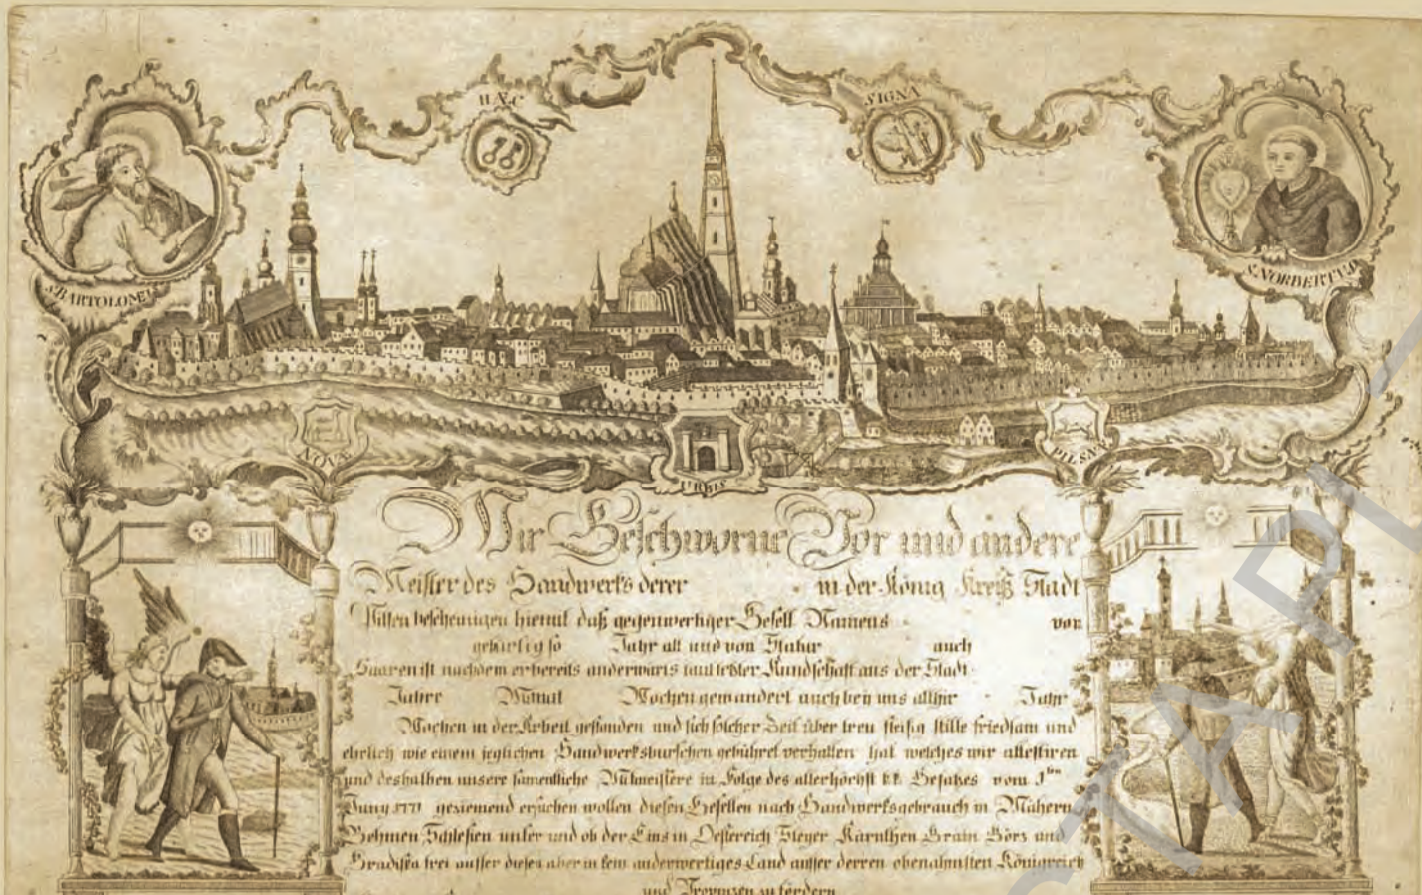 HÆC
SIGNA
S. BARTOLOMEU
S. NORBERTUS
NOVÆ
URBIS
PILSNÆ
Wir Geschworne Vor und andere
Meister des Handwerks derer in der König Kreiß Stadt
Pilsen bescheinigen hiemit daß gegenwertiger Gesell Namens von
gebürtig so Jahr alt und von Statur auch
Haaren ist nachdem er bereits anderwärts laut letzter Kundschaft aus der Stadt
Jahre Monat Wochen gewandert auch bey uns allhir Jahr
Wochen in der Arbeit gestanden und sich solcher Zeit über treu fleisig stille friedsam und
ehrlich wie einem jeglichen Handwerksburschen gebühret verhalten hat welches wir attestiren
und deshalben unsere sämentliche Mitmeistere in Folge des allerhöchst kk Gesatzes vom 1ten
Juny 1771 geziemend ersuchen wollen diesen Gesellen nach Handwerksgebrauch in Mähern
Böhmen Schlesien unter und ob der Ens in Oestereich Steyer Kärnthen Grain Görz und
Gradiska frei ausser diesen aber in kein anderwertiges Land ausser derren obenahnsten Königreich
und Provinzen zu fördern